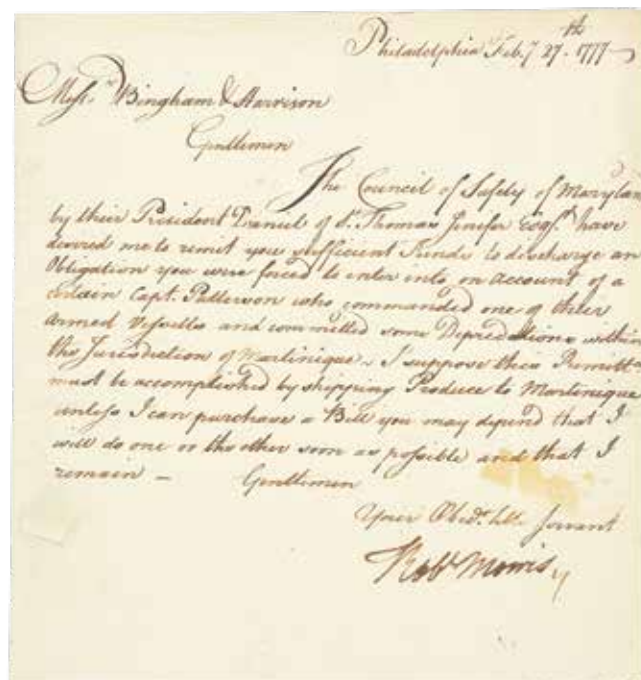 Philadelphia Feb.y 27th. 1777
Mess.rs Bingham & Harrison
Gentlemen
The Council of Safety of Maryland
by their President Daniel of St. Thomas Jenifer Esq.r have
desired me to remit you sufficient Funds to discharge an
Obligation you were forced to enter into on account of a
certain Capt. Patterson who commanded one of their
armed Vessells and committed some Depredations within
the Jurisdiction of Martinique. I suppose this Remitt.ce
must be accomplished by shipping Produce to Martinique
unless I can purchase a Bill you may depend that I
will do one or the other soon as possible and that I
remain — Gentlemen
Your Obed.t hble Servant
Rob.t Morris